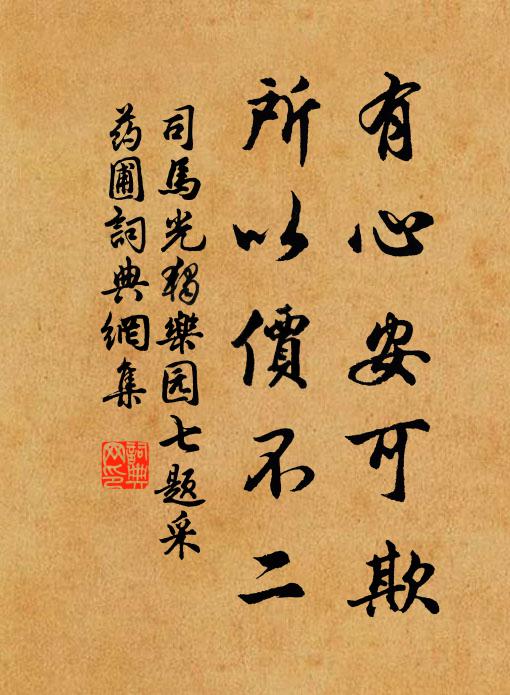 有心安可欺
所以價不二
司馬光獨樂园七题采
药圃詞典網集
詞典網印